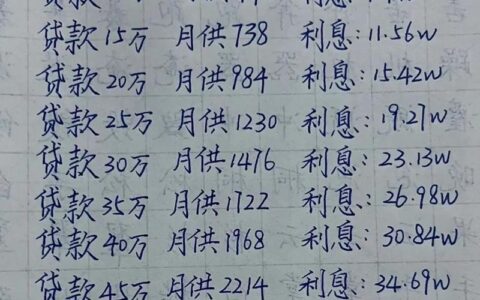 贷款15万 月供738 利息:11.56w
贷款20万 月供984 利息:15.42w
贷款25万 月供1230 利息:19.27w
贷款30万 月供1476 利息:23.13w
贷款35万 月供1722 利息:26.98w
贷款40万 月供1968 利息:30.84w
贷款45万 月供2214 利息:34.69w